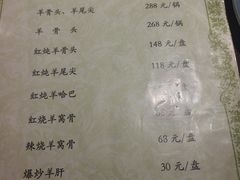 羊骨头、羊尾尖 288元/锅
羊骨头 268元/锅
红炖羊骨头 148元/盘
红炖羊尾尖 118元/盘
红炖羊哈巴
红烧羊窝骨 元/盘
辣烧羊窝骨 63元/盘
爆炒羊肝 30元/盘